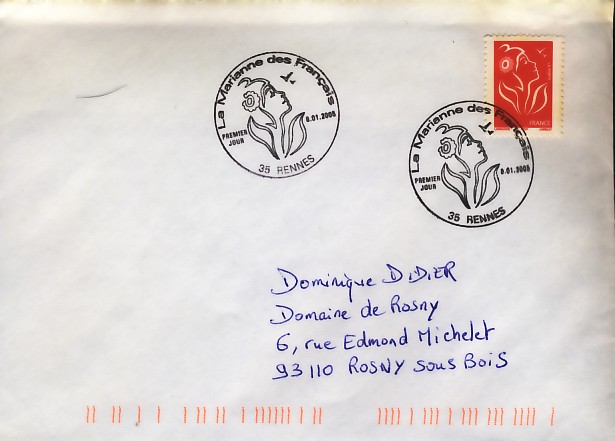 La Marianne des Français
PREMIER JOUR
8.01.2005
35 RENNES
FRANCE
La Marianne des Français
PREMIER JOUR
8.01.2005
35 RENNES
Dominique DIDIER
Domaine de Rosny
6, rue Edmond Michelet
93110 ROSNY SOUS BOIS